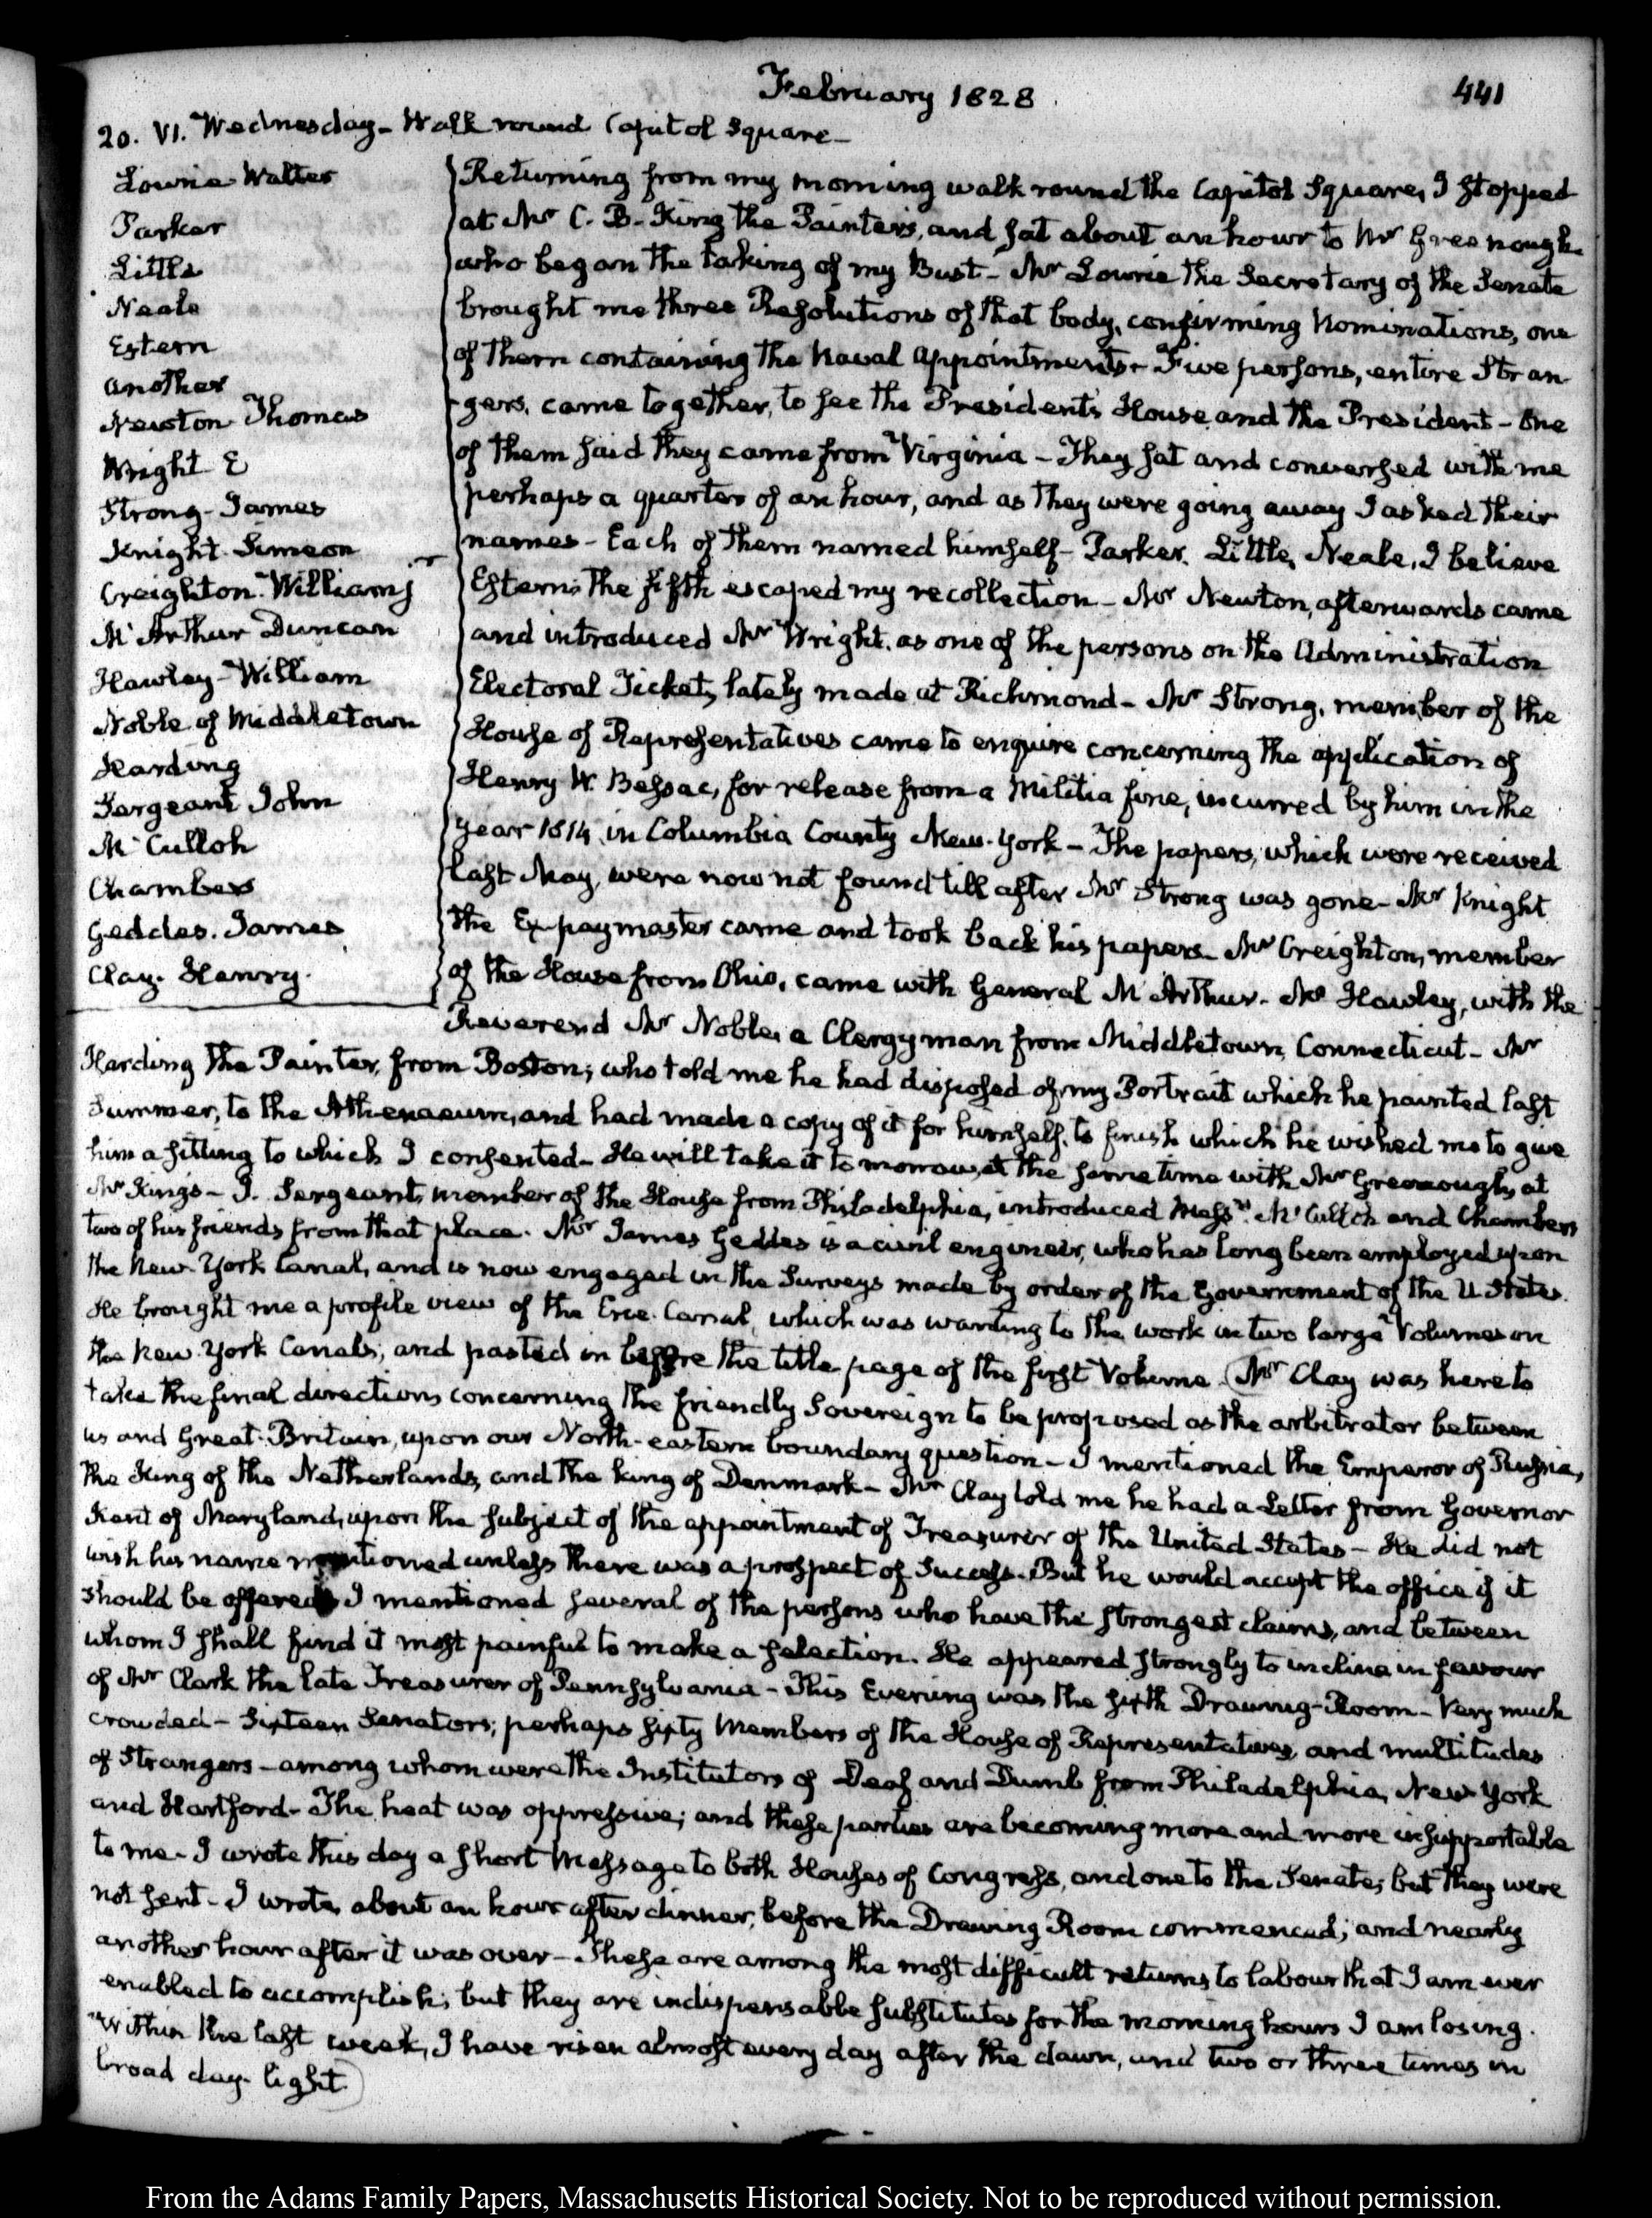 February 1828.
441
20. VI. Wednesday - Walk round Capitol Square -
Lowrie Walter
Parker
Little
Neale
Estern
another
Newton Thomas
Wright E
Strong - James
Knight Simeon
Creighton - William J
Mc Arthur Duncan
Hawley - William
Noble of Middletown
Harding
Sergeant John
Mc Culloh
Chambers
Geddes. James
Clay. Henry.
Returning from my morning walk round the Capitol Square, I stopped
at Mr C. B. King the Painter's, and sat about an hour to Mr Greenough
who began the taking of my Bust - Mr Lowrie the Secretary of the Senate
brought me three Resolutions of that body, confirming Nominations, one
of them containing the Naval appointments - Five persons, entire Stran-
gers, came together, to see the President's House and the President - One
of them said they came from Virginia - They sat and conversed with me
perhaps a quarter of an hour, and as they were going away I asked their
names - Each of them named himself - Parker, Little, Neale, I believe
Estern; the fifth escaped my recollection - Mr Newton, afterwards came
and introduced Mr Wright, as one of the persons on the Administration
Electoral Ticket, lately made at Richmond - Mr Strong, member of the
House of Representatives came to enquire concerning the application of
Henry W. Bessac, for release from a Militia fine, incurred by him in the
year 1814 in Columbia County New-York - The papers, which were received
last May, were now not found till after Mr Strong was gone - Mr Knight
the Ex-paymaster came and took back his papers - Mr Creighton, member
of the House from Ohio, came with General Mc Arthur - Mr Hawley, with the
Reverend Mr Noble, a Clergyman from Middletown, Connecticut - Mr
Harding the Painter, from Boston; who told me he had disposed of my Portrait which he painted last
Summer, to the Athenaeum, and had made a copy of it for himself, to finish which he wished me to give
him a sitting to which I consented - He will take it to morrow, at the same time with Mr Greenough, at
Mr King's - J. Sergeant, member of the House from Philadelphia, introduced Messrs. Mc Culloh and Chambers
two of his friends from that place. Mr James Geddes is a civil engineer, who has long been employed upon
the New-York Canal, and is now engaged in the Surveys made by order of the Government of the U. States.
He brought me a profile view of the Erie Canal, which was wanting to the work in two large Volumes on
the New-York Canals, and pasted in before the title page of the first Volume. (Mr Clay was here to
take the final directions concerning the friendly Sovereign to be proposed as the arbitrator between
us and Great-Britain, upon our North-eastern boundary question - I mentioned the Emperor of Russia,
the King of the Netherlands, and the king of Denmark - Mr Clay told me he had a Letter from Governor
Kent of Maryland, upon the subject of the appointment of Treasurer of the United States - He did not
wish his name mentioned unless there was a prospect of Success. But he would accept the office if it
should be offered. I mentioned several of the persons who have the strongest claims, and between
whom I shall find it most painful to make a selection. He appeared strongly to incline in favour
of Mr Clark the late Treasurer of Pennsylvania - This Evening was the sixth Drawing-Room - Very much
crowded - Sixteen Senators; perhaps sixty Members of the House of Representatives, and multitudes
of Strangers - among whom were the Institutors of Deaf and Dumb from Philadelphia, New York
and Hartford - The heat was oppressive; and these parties are becoming more and more insupportable
to me - I wrote this day a short Message to both Houses of Congress, and one to the Senate; but they were
not sent - I wrote about an hour after dinner, before the Drawing Room commenced; and nearly
another hour after it was over - These are among the most difficult returns to labour that I am ever
enabled to accomplish; but they are indispensable substitutes for the morning hours I am losing.
Within the last week, I have risen almost every day after the dawn, and two or three times in
broad day-light.)
From the Adams Family Papers, Massachusetts Historical Society. Not to be reproduced without permission.